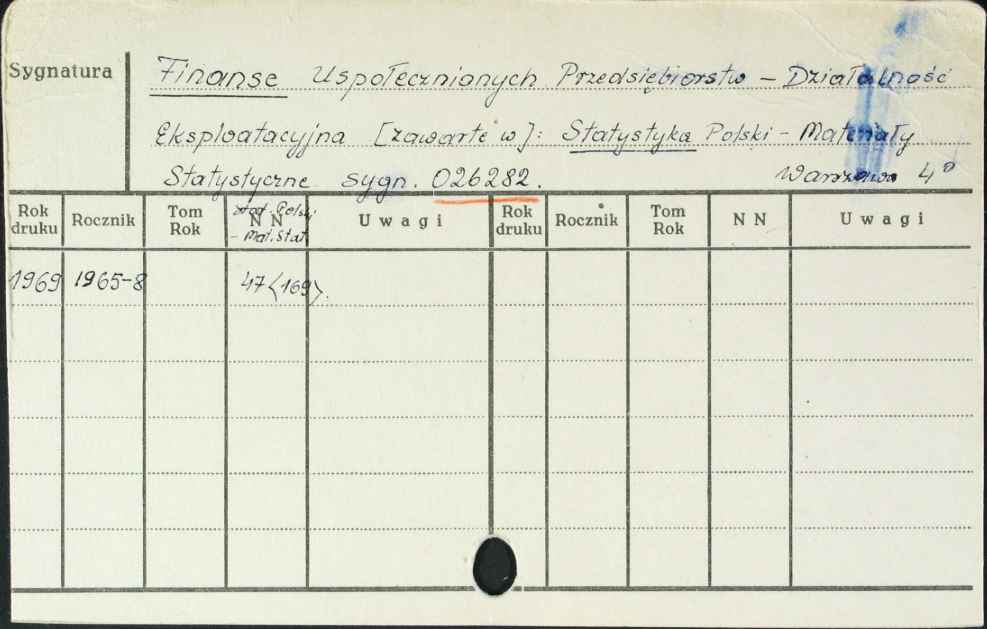 Sygnatura
Finanse Uspołecznionych Przedsiębiorstw – Działalność
Eksploatacyjna [zawarte w]: Statystyka Polski – Materiały
Statystyczne sygn. 026282. Warszawa 4°
Rok druku Rocznik Tom Rok NN Uwagi Rok druku Rocznik Tom Rok NN Uwagi
Stat. Polski
– Mat. Stat.
1969 1965-8 47<169>.